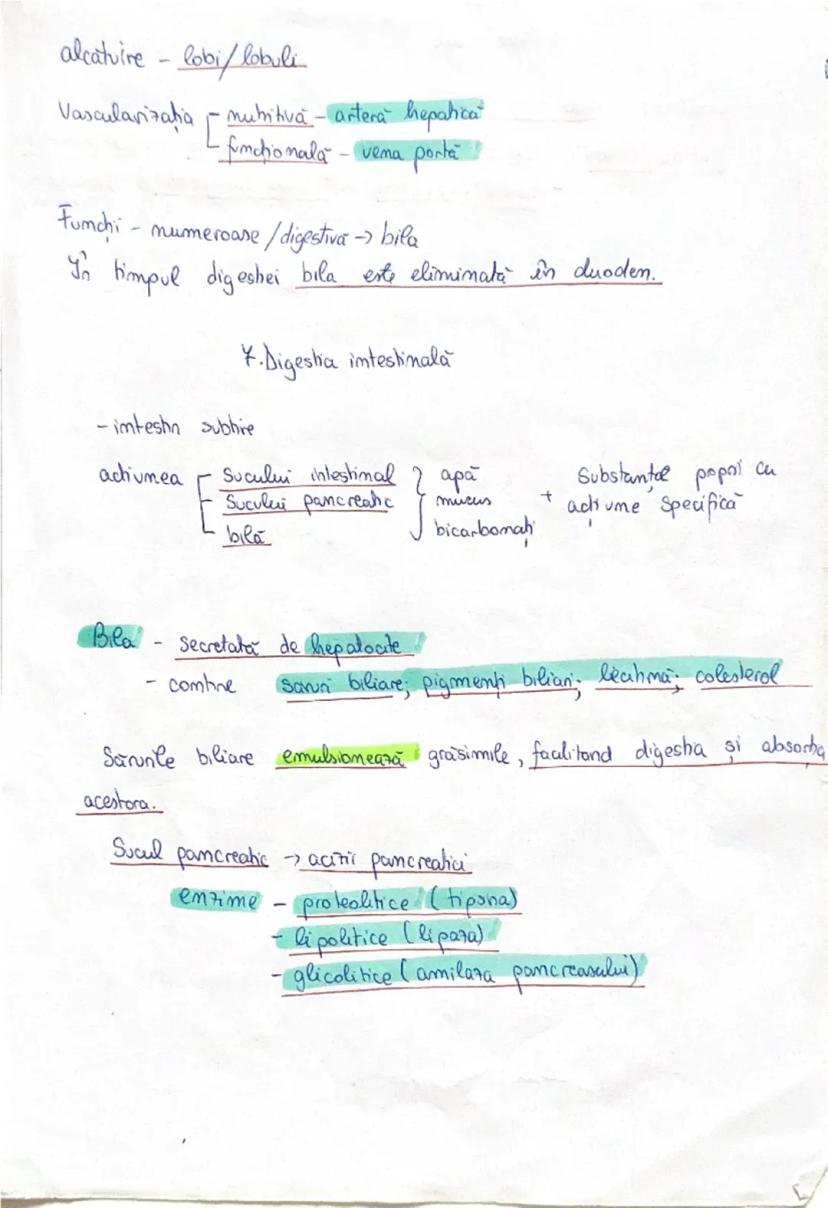 alcătuire - lobi/lobuli
Vascularizația - nutritivă - arteră hepatică
funcțională - vena portă
Funcții - numeroase/digestivă → bila
În timpul digestiei bila este eliminată în duoden.
7. Digestia intestinală
- intestin subtire
actiunea sucului intestinal } apă + Substanțe proprii cu
sucului pancreatic mucus acțiune specifică
bilă bicarbonați
Bila - secretată de hepatocite
- contine saruri biliare; pigmenți biliari; lecitină; colesterol
Sărurile biliare emulsionează grăsimile, facilitand digestia și absorbția
acestora.
Sucul pancreatic → acizii pancreatici
enzime - proteolitice (tipsina)
- lipolitice (lipaza)
- glicolitice (amilaza pancreasului)